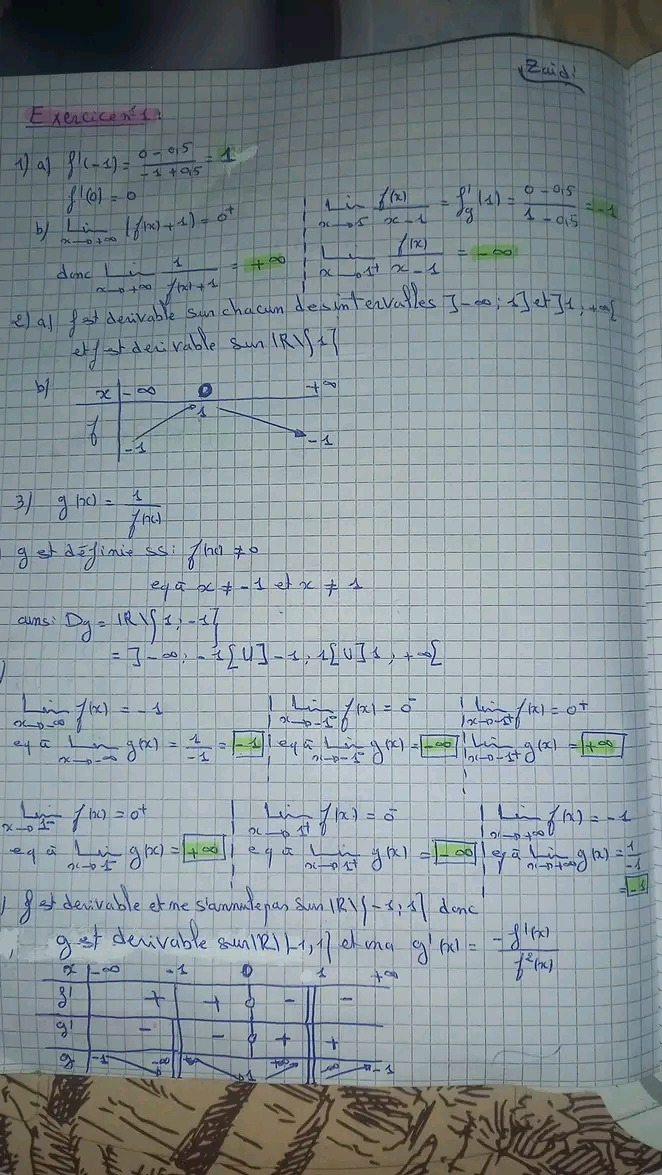 Zaidi
Exercice n°1:
1) a) f'(-1) = (0 - 0,5)/(-1 + 0,5) = 1
f'(0) = 0
b) Lim x→+∞ (f(x) + 1) = 0⁺
donc Lim x→+∞ 1/(f(x) + 1) = +∞
Lim x→1⁻ f(x)/(x - 1) = f'g(1) = (0 - 0,5)/(1 - 0,5) = -1
Lim x→1⁺ f(x)/(x - 1) = -∞
2) a) f est dérivable sur chacun des intervalles ]-∞; 1] et ]1, +∞[
et f est dérivable sur IR\{1}
b) x | -∞ 0 +∞
f | -1 1 -1
3) g(x) = 1/f(x)
g est définie ssi f(x) ≠ 0
eq à x ≠ -1 et x ≠ 1
ains: Dg = IR\{1; -1}
= ]-∞; -1[ U ]-1; 1[ U ]1, +∞[
Lim x→-∞ f(x) = -1
eq à Lim x→-∞ g(x) = 1/-1 = -1
Lim x→-1⁻ f(x) = 0⁻
eq à Lim x→-1⁻ g(x) = -∞
Lim x→-1⁺ f(x) = 0⁺
Lim x→-1⁺ g(x) = +∞
Lim x→1⁻ f(x) = 0⁺
eq à Lim x→1⁻ g(x) = +∞
Lim x→1⁺ f(x) = 0⁻
eq à Lim x→1⁺ g(x) = -∞
Lim x→+∞ f(x) = -1
eq à Lim x→+∞ g(x) = 1/-1
= -1
f est derivable et ne s'annule pas sur IR\{-1; 1} donc
g est derivable sur IR\{-1, 1} et on a g'(x) = -f'(x)/f²(x)
x | -∞ -1 0 1 +∞
f' | + || + 0 - || -
g' | - || - 0 + || +
g | -1 -∞ || +∞ 1 +∞ || -∞ -1